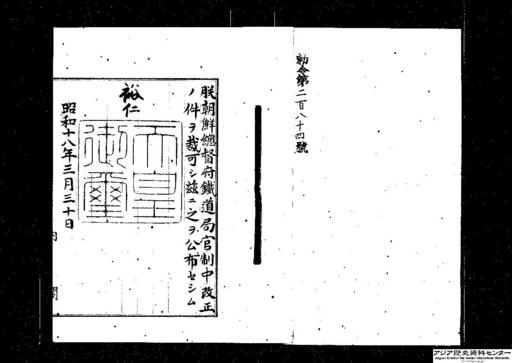 勅令第二百八十四號
朕朝鮮總督府鐵道局官制中改正
ノ件ヲ裁可シ茲ニ之ヲ公布セシム
裕仁
天皇
御璽
昭和十八年三月三十日
内
閣
アジア歴史資料センター
Japan Center for Asian Historical Records